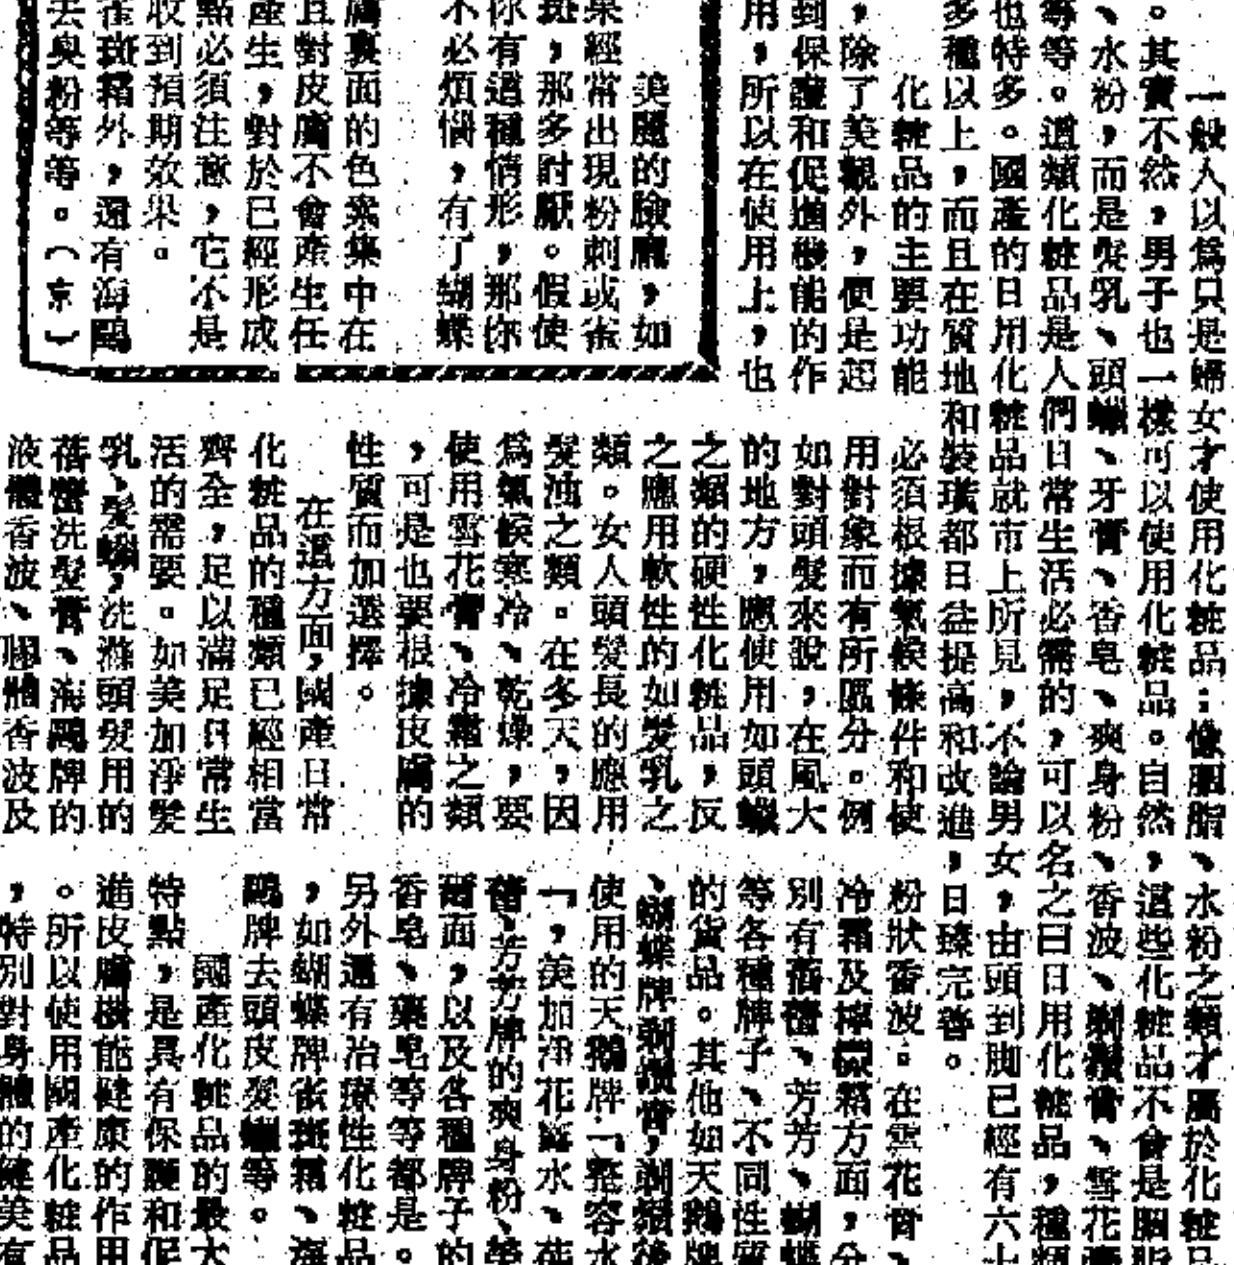 一般人以爲只是婦女才使用化粧品;像胭脂、水粉之類才屬於化粧品
。其實不然,男子也一樣可以使用化粧品。自然,這些化粧品不會是胭脂
、水粉,而是髮乳、頭蠟、牙膏、香皂、爽身粉、香波、剃鬚膏、雪花膏
等等。這類化粧品是人們日常生活必需的,可以名之曰日用化粧品,種類
也特多。國產的日用化粧品就市上所見,不論男女,由頭到脚已經有六十
多種以上,而且在質地和裝璜都日益提高和改進,日臻完善。
化粧品的主要功能
,除了美觀外,便是起
到保護和促進機能的作
用,所以在使用上,也
必須根據氣候條件和使
用對象而有所區分。例
如對頭髮來說,在風大
的地方,應使用如頭蠟
之類的硬性化粧品,反
之應用軟性的如髮乳之
類。女人頭髮長的應用
髮油之類。在冬天,因
爲氣候寒冷、乾燥,要
使用雪花膏、冷霜之類
,可是也要根據皮膚的
性質而加選擇。
在這方面,國產日常
化粧品的種類已經相當
齊全,足以滿足日常生
活的需要。如美加淨髮
乳、髮蠟,洗滌頭髮用的
蓓蕾洗髮膏、海鷗牌的
液體香波、膠體香波及
粉狀香波。在雪花膏、
冷霜及檸檬霜方面,分
別有蓓蕾、芳芳、蝴蝶
等各種牌子、不同性質
的貨品。其他如天鵝牌
、蝴蝶牌剃鬚膏,剃鬚後
使用的天鵝牌「整容水
」,美加淨花露水、蓓
蕾、芳芳牌的爽身粉、螢
香皂、藥皂等等都是。
另外還有治療性化粧品
,如蝴蝶牌雀斑霜、海
鷗牌去頭皮髮蠟等。
國產化粧品的最大
特點,是具有保護和促
進皮膚機能健康的作用
。所以使用國產化粧品
,特別對身體的健美有
美麗的臉龐,如
果經常出現粉刺或雀
斑,那多討厭。假使
你有這種情形,那你
不必煩惱,有了蝴蝶
膚裏面的色素集中在
且對皮膚不會產生任
產生,對於已經形成
點必須注意,它不是
收到預期效果。
雀斑霜外,還有海鷗
去臭粉等等。(京)